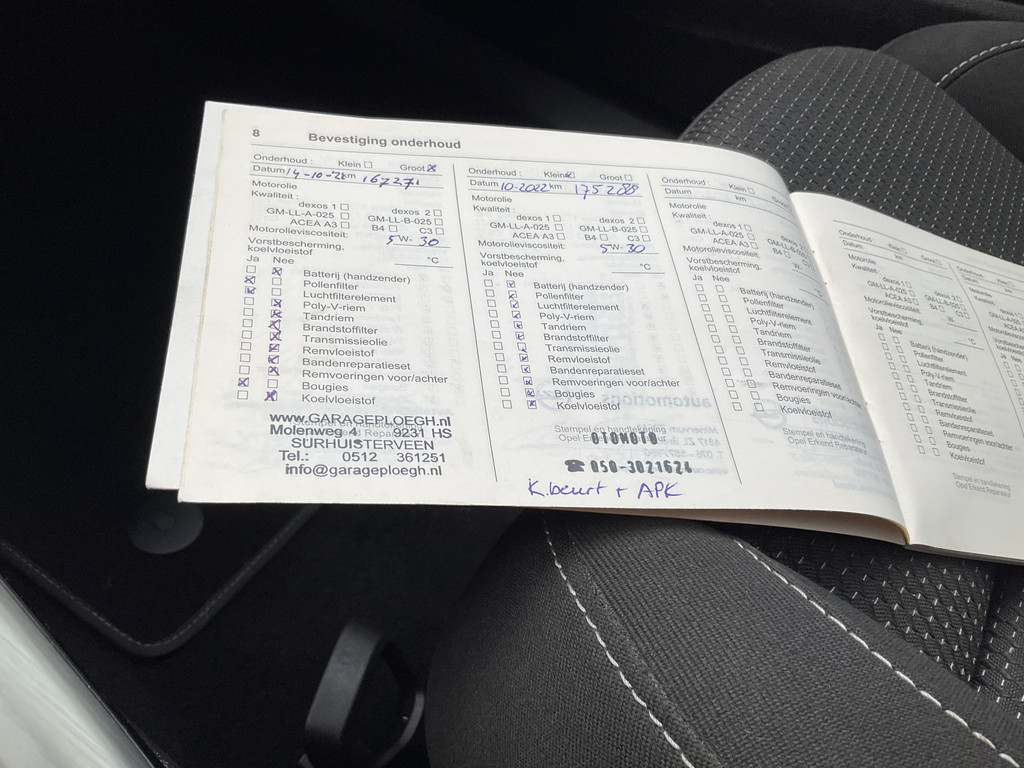 8 Bevestiging onderhoud
Onderhoud : Klein Groot
Datum 14-10-21 km 167271
Motorolie
Kwaliteit :
dexos 1 dexos 2
GM-LL-A-025 GM-LL-B-025
ACEA A3 B4 C3
Motorolieviscositeit: 5W-30
Vorstbescherming,
koelvloeistof °C
Ja Nee
Batterij (handzender)
Pollenfilter
Luchtfilterelement
Poly-V-riem
Tandriem
Brandstoffilter
Transmissieolie
Remvloeistof
Bandenreparatieset
Remvoeringen voor/achter
Bougies
Koelvloeistof
www.GARAGEPLOEGH.nl
Molenweg 4 9231 HS
SURHUISTERVEEN
Tel.: 0512 361251
info@garageploegh.nl
Onderhoud : Klein Groot
Datum 10-2022 km 175289
Motorolie
Kwaliteit :
dexos 1 dexos 2
GM-LL-A-025 GM-LL-B-025
ACEA A3 B4 C3
Motorolieviscositeit: 5W-30
Vorstbescherming,
koelvloeistof °C
Ja Nee
Batterij (handzender)
Pollenfilter
Luchtfilterelement
Poly-V-riem
Tandriem
Brandstoffilter
Transmissieolie
Remvloeistof
Bandenreparatieset
Remvoeringen voor/achter
Bougies
Koelvloeistof
Stempel en handtekening
Opel OTOMOTO
☎ 050-3021624
K.beurt + APK
Onderhoud : Klein
Datum km
Motorolie
Kwaliteit :
dexos 1
GM-LL-A-025
ACEA A3 B4
Motorolieviscositeit: W-
Vorstbescherming,
koelvloeistof
Ja Nee
Batterij (handzender)
Pollenfilter
Luchtfilterelement
Poly-V-riem
Tandriem
Brandstoffilter
Transmissieolie
Remvloeistof
Bandenreparatieset
Remvoeringen voor/achter
Bougies
Koelvloeistof
Stempel en handtekening
Opel Erkend Reparateur
Onderhoud : Klein
Datum km
Motorolie
Kwaliteit :
dexos 1
GM-LL-A-025
ACEA A3 B4
Motorolieviscositeit:
Vorstbescherming,
koelvloeistof °C
Ja Nee
Batterij (handzender)
Pollenfilter
Luchtfilterelement
Poly-V-riem
Tandriem
Brandstoffilter
Transmissieolie
Remvloeistof
Bandenreparatieset
Remvoeringen voor/achter
Bougies
Koelvloeistof
Stempel en handtekening
Opel Erkend Reparateur